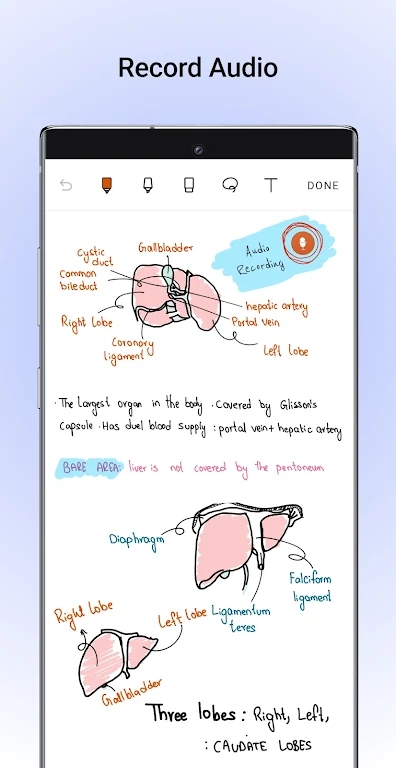 Record Audio
T
DONE
Cystic
duct
Gallbladder
Audio
Recording
Common
bile duct
hepatic artery
Portal vein
Right Lobe
Coronary
ligament
Left lobe
· The largest organ in the body · Covered by Glisson's
Capsule · Has duel blood supply : portal vein + hepatic artery
BARE AREA: liver is not covered by the peritoneum
Diaphragm
Falciform
ligament
Ligamentum
teres
Right lobe
Left lobe
Gallbladder
Three lobes : Right, Left,
: CAUDATE LOBES